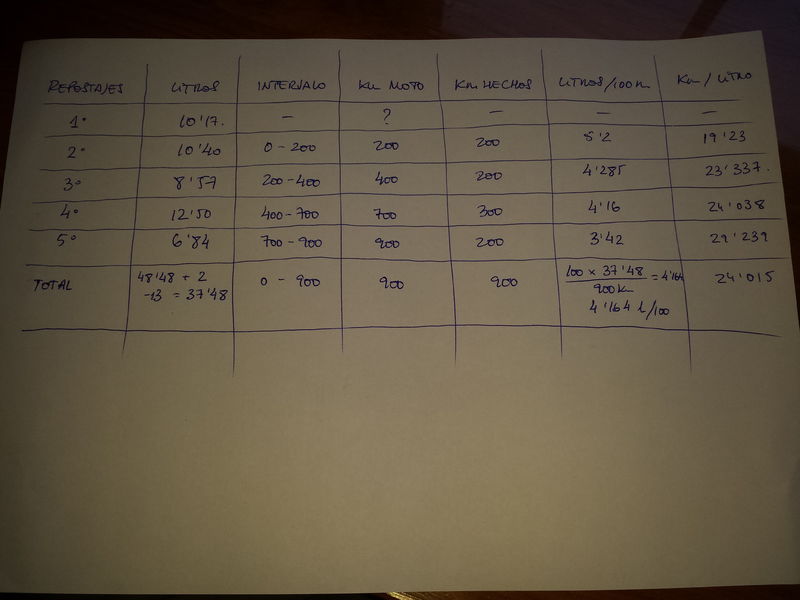 REPOSTAJES LITROS INTERVALO Km MOTO Km HECHOS LITROS/100 Km Km/LITRO
1º 10'17. — ? — — —
2º 10'40 0-200 200 200 5'2 19'23
3º 8'57 200-400 400 200 4'285 23'337.
4º 12'50 400-700 700 300 4'16 24'038
5º 6'84 700-900 900 200 3'42 29'239
TOTAL 48'48 + 2 0 - 900 900 900 100 x 37'48 = 4'164 24'015
-13 = 37'48 900 Km
4'164 l/100